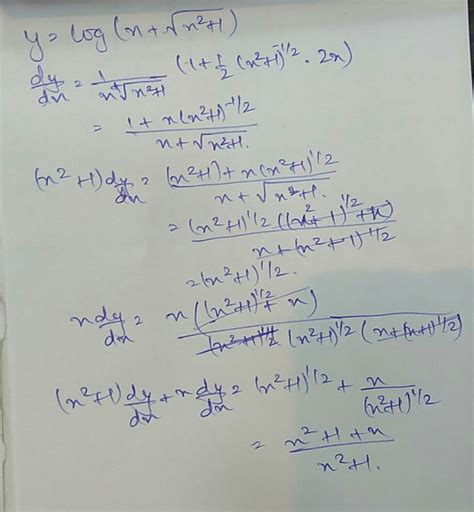 y = log (x + √x²+1)
dy/dx = 1/(x+√x²+1) (1 + 1/2 (x²+1)^-1/2 · 2x)
= (1 + x(x²+1)^-1/2)/(x + √x²+1.)
(x²+1) dy/dx = ((x²+1) + x(x²+1)^1/2)/(x + √x²+1.)
= ((x²+1)^1/2 ((x²+1)^1/2 + x))/(x + (x²+1)^1/2)
= (x²+1)^1/2.
x dy/dx = x((x²+1)^1/2 + x)/((x²+1)^1/2 (x²+1)^1/2 (x+(x+1)^1/2))
(x²+1) dy/dx + x dy/dx = (x²+1)^1/2 + x/(x²+1)^1/2
= (x²+1+x)/(x²+1.)